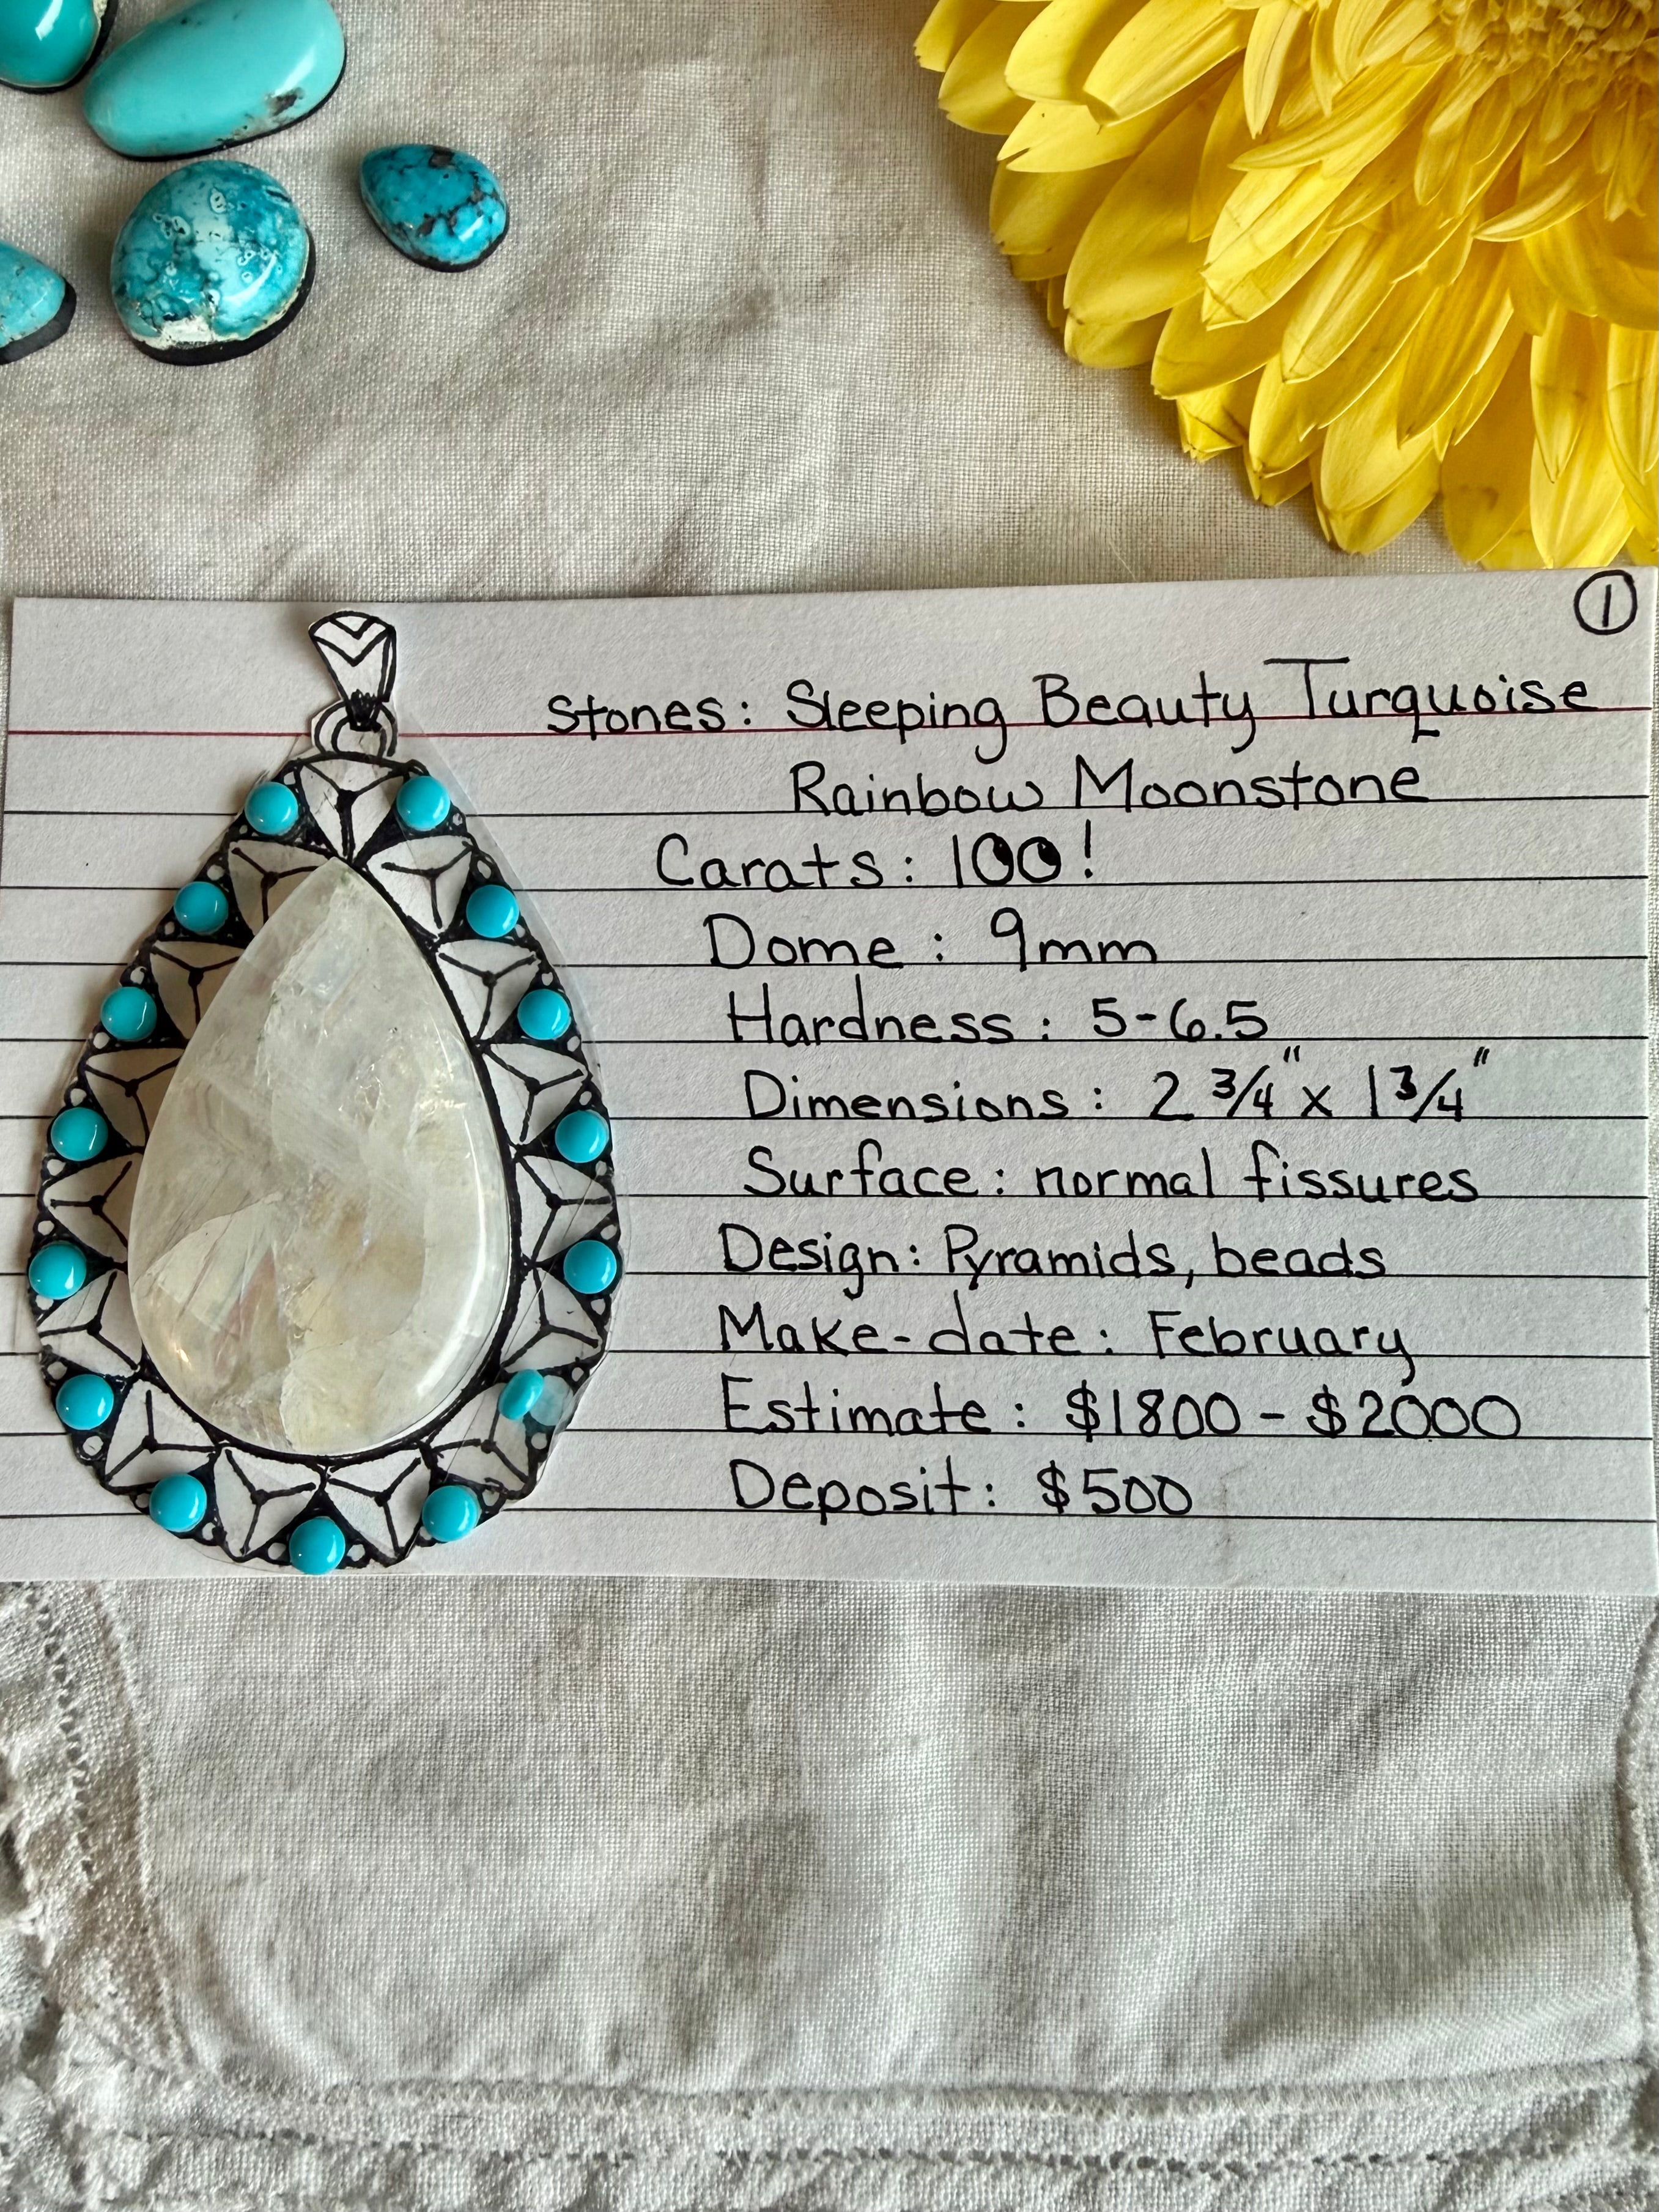 ①
Stones: Sleeping Beauty Turquoise
Rainbow Moonstone
Carats: 100!
Dome: 9mm
Hardness: 5-6.5
Dimensions: 2 3/4" x 1 3/4"
Surface: normal fissures
Design: Pyramids, beads
Make-date: February
Estimate: $1800 - $2000
Deposit: $500